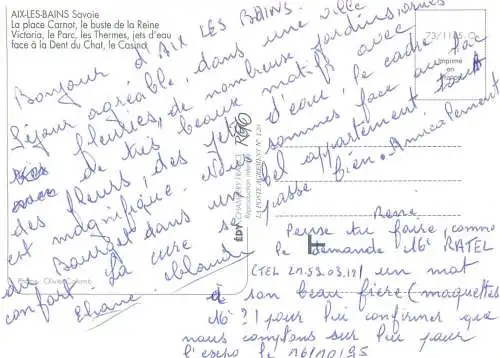 AIX-LES-BAINS Savoie
La place Carnot, le buste de la Reine
Victoria, le Parc, les Thermes, jets d'eau
face à la Dent du Chat, le Casino
73/1185 C
Imprimé
en
Bonjour d'AIX LES BAINS.
Séjour agréable, dans une ville
fleuries, de nombreux jardinières
de très beaux motifs avec
des fleurs, des jets d'eau, le cadre
est magnifique. Nous sommes face au lac
du Bourget dans un bel appartement tout
confort. La cure se passe bien. Amicalement
Eliane. René
Reproduction
Peux tu faire, comme
le demande Mr RATEL
(TEL 21.59.03.17), un mot
à son beau frère (maquettes
Mr ?) pour lui confirmer que
nous comptons sur lui pour
l'expo le 16/10/95